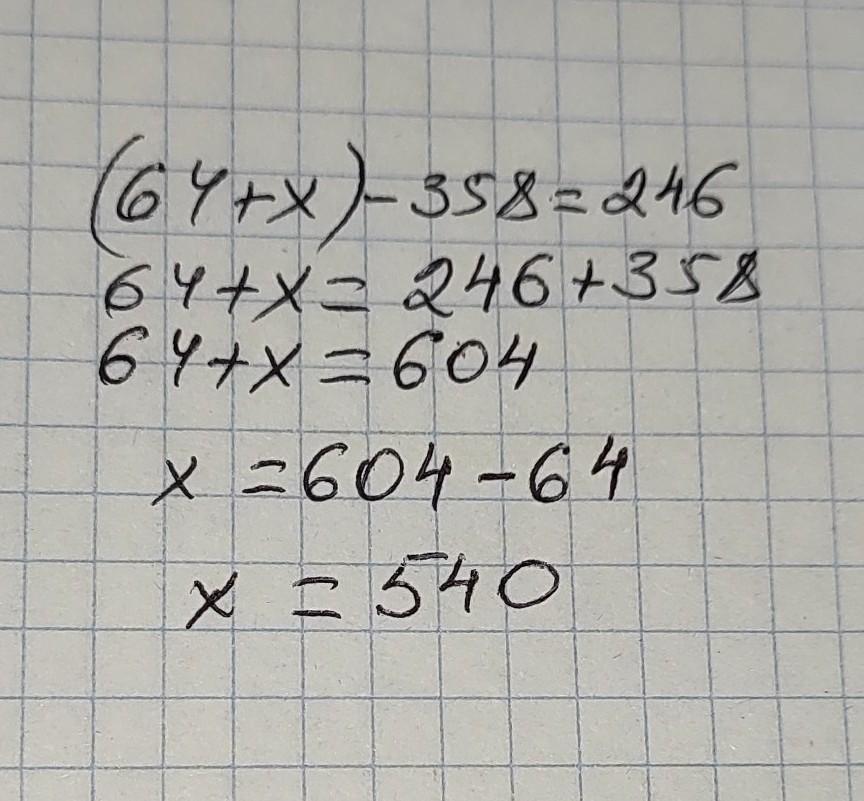 (64+x)-358=246
64+x=246+358
64+x=604
x=604-64
x=540